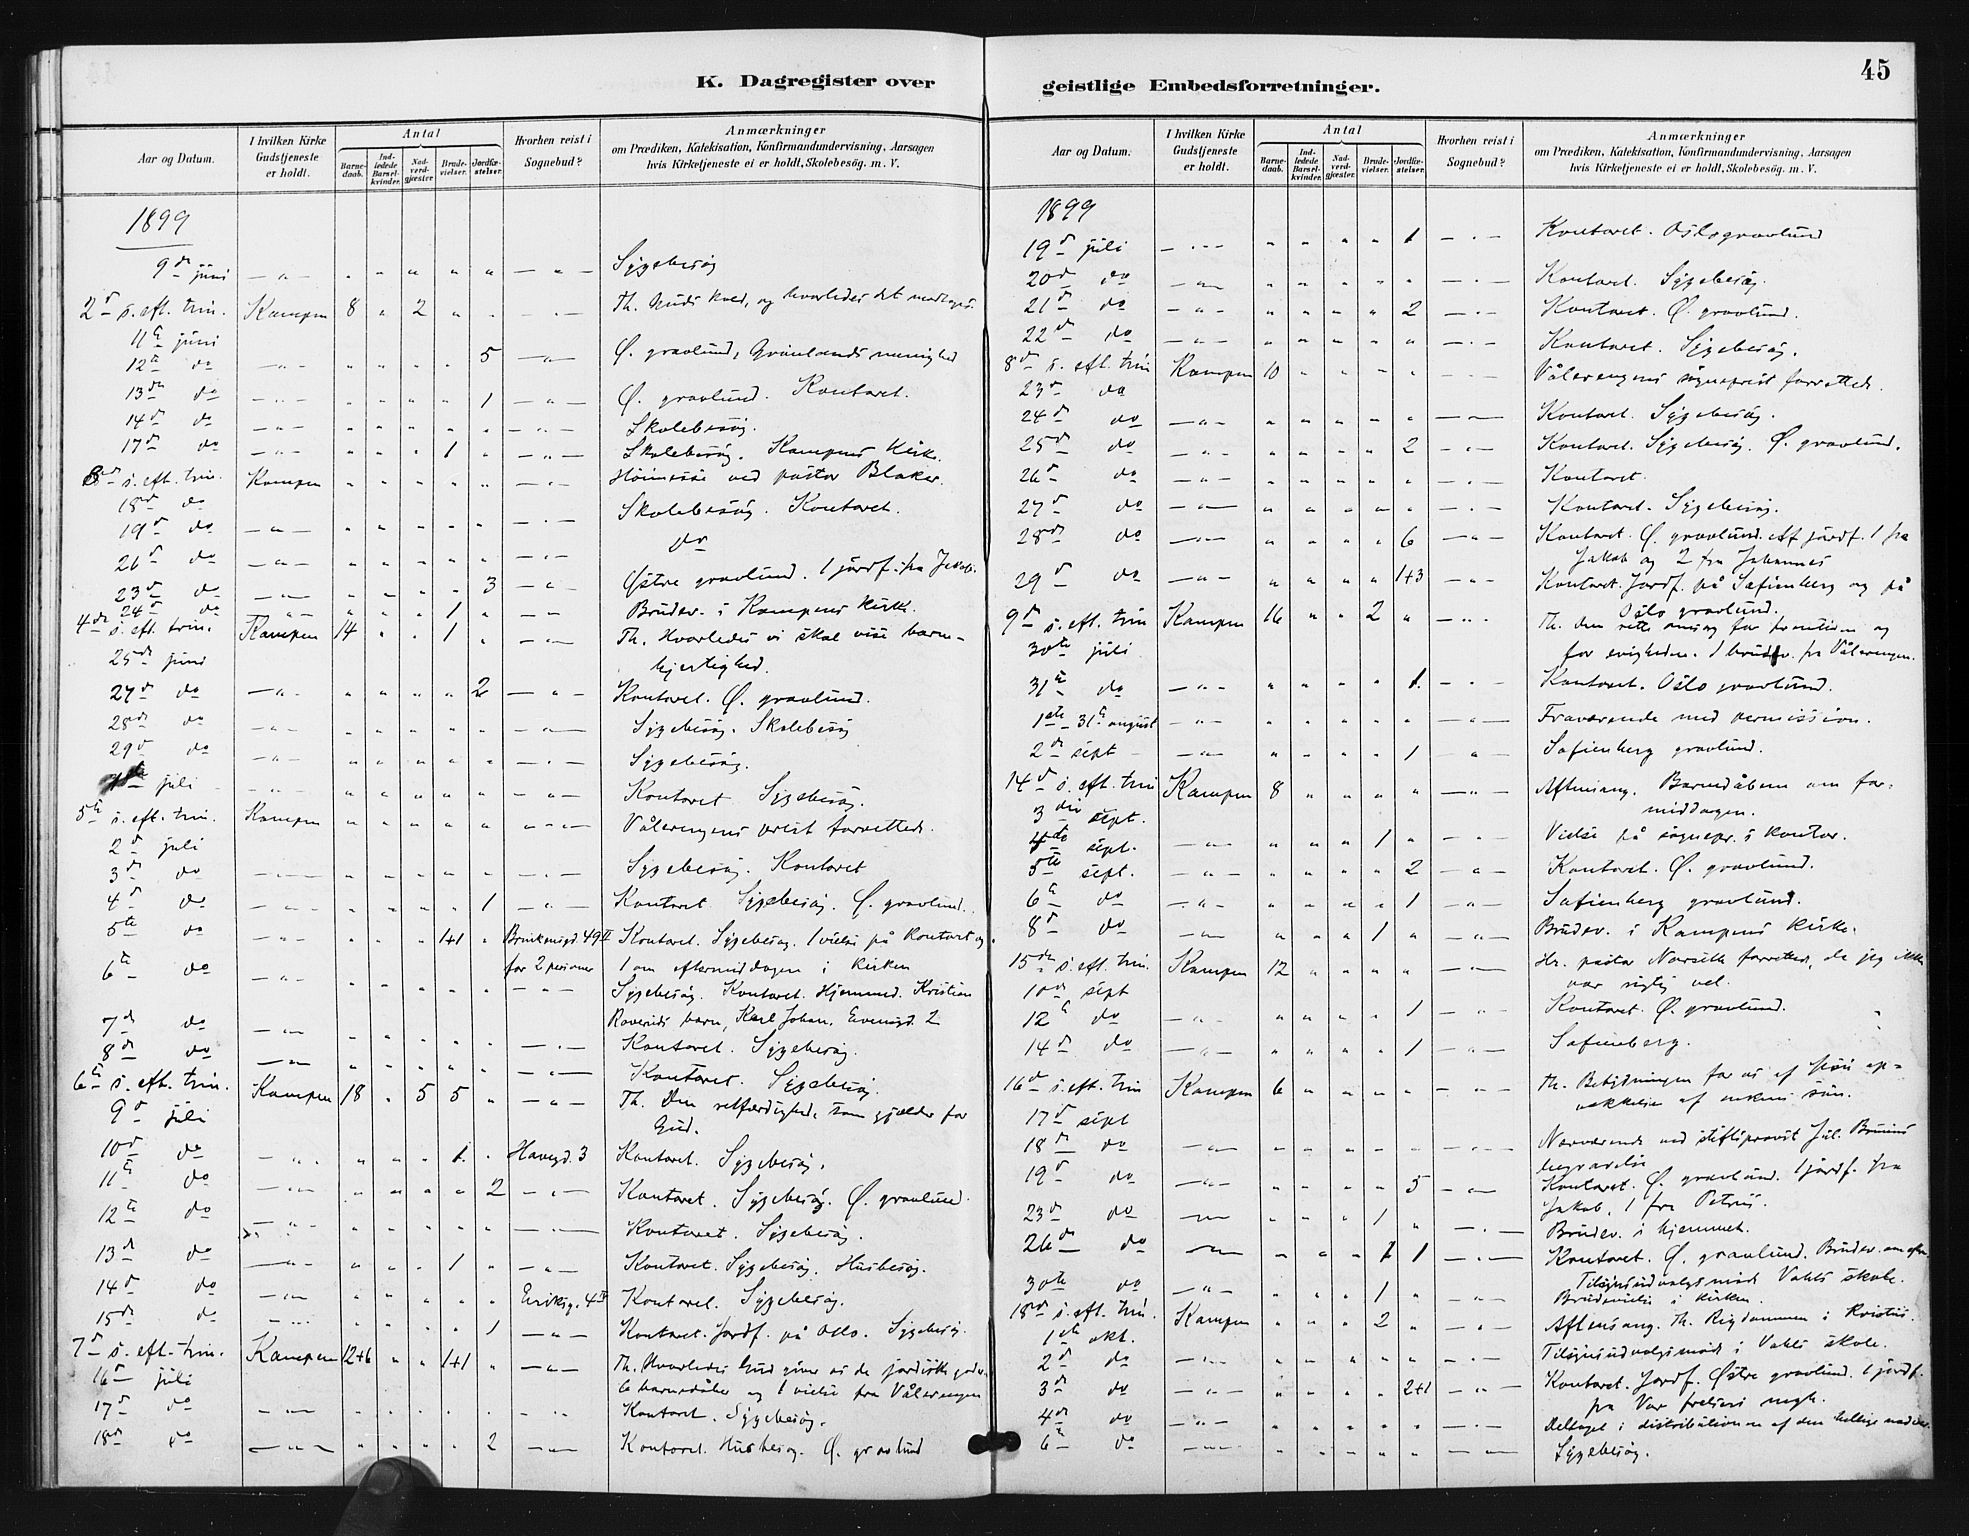 45
K. Dagregister over
geistlige Embedsforretninger.
Aar og Datum.
I hvilken Kirke Gudstjeneste er holdt.
Antal
Barne-daab.
Ind-ledede Barsel-kvinder.
Nad-verd-gjæster.
Brude-vielser.
Jordfæ-stelser.
Hvorhen reist i Sognebud?
Anmærkninger
om Prædiken, Katekisation, Konfirmandundervisning, Aarsagen
hvis Kirketjeneste ei er holdt, Skolebesög. m. V.
1899
9de juni — " — " " " " " — " — Sygebesög
2d s. eft. trin. Kampen 8 " 2 " " Th. Guds kald, og hvorledes det modtages.
11te juni
12te do — " — " " " " 5 — " — Ø. gravlund, Grönlands menighed
13de do — " — " " " " 1 — " — Ø. gravlund. Kontoret.
14de do — " — " " " " " — " — Skolebesög.
17de do — " — " " " 1 " — " — Skolebesög. Kampens Kirke.
3die s. eft. trin. Kampen " " " " " — " — Höimesse ved pastor Blaker.
18de do
19de do — " — " " " " " — " — Skolebesög. Kontoret.
do
23d do — " — " " " " 3 — " — Østre gravlund. 1 jordf. fra Jakob.
24d do " " " 1 " — " — Brudev. i Kampens kirke.
4de s. eft. trin. Kampen 14 " " 1 " — " — Th. Hvorledes vi skal vise barm-
hjertighed.
25de juni
27d do — " — " " " " 2 — " — Kontoret. Ø. gravlund.
28de do — " — " " " " " — " — Sygebesög. Skolebesög
29d do — " — " " " " " — " — Sygebesög.
juli — " — " " " " " — " — Kontoret Sygebesög.
5te s. eft. trin. Kampen " " " " " — " — Vålerengens prest forrettede.
2d juli
3d do — " — " " " " " — " — Sygebesög. Kontoret
4d do — " — " " " " 1 — " — Kontoret Sygebesög. Ø. gravlund.
5te do — " — " " " 1+1 " 49II Kontoret. Sygebesög. 1 vielse på kontoret og
for 2 personer 1 om eftermiddagen i kirken
6te do — " — " " " " " — " — Sygebesög. Kontoret. Hjemmed. Kristian
barn, Karl Johan, 2
7d do — " — " " " " " — " — Kontoret. Sygebesög.
8d do — " — " " " " " — " — Kontoret. Sygebesög.
6te s. eft. trin. Kampen 18 " 5 5 " — " — Th. Den retfærdighed, som gjælder for
Gud.
9d juli
10d do — " — " " " 1 " Haugd. 3 Kontoret. Sygebesög.
11te do — " — " " " " 2 — " — Kontoret. Sygebesög. Ø. gravlund.
12te do — " — " " " " " — " — Kontoret. Sygebesög.
13d do — " — " " " 1 " — " — Kontoret. Sygebesög. Husbesög.
14d do — " — " " " " " Eriksg. 4 Kontoret. Sygebesög.
15de do — " — " " " " 1 — " — Kontoret. Jordf. på Oslo. Sygebesög.
7d s. eft. trin. Kampen 12+6 " " 1+1 " — " — Th. Hvorledes Gud giver os de jordiske goder.
6 barnedåber og 1 vielse fra Vålerengen
16d juli
17d do — " — " " " " " — " — Kontoret. Sygebesög.
18de do — " — " " " " 2 — " — Kontoret. Husbesög. Ø. gravlund
Aar og Datum.
I hvilken Kirke Gudstjeneste er holdt.
Antal
Barne-daab.
Ind-ledede Barsel-kvinder.
Nad-verd-gjæster.
Brude-vielser.
Jordfæ-stelser.
Hvorhen reist i Sognebud?
Anmærkninger
om Prædiken, Katekisation, Konfirmandundervisning, Aarsagen
hvis Kirketjeneste ei er holdt, Skolebesög. m. V.
1899
19d juli — " — " " " " 1 — " — Kontoret. Oslo gravlund
20de do — " — " " " " " — " — Kontoret. Sygebesög.
21d do — " — " " " " 2 — " — Kontoret. Ø. gravlund.
22de do — " — " " " " " — " — Kontoret. Sygebesög.
8de s. eft. trin Kampen 10 " " " " — " — Vålerengens sogneprest forrettede.
23d do
24d do — " — " " " " " — " — Kontoret. Sygebesög.
25de do — " — " " " " 2 — " — Kontoret. Sygebesög. Ø. gravlund.
26d do — " — " " " " " — " — Kontoret.
27d do — " — " " " " " — " — Kontoret. Sygebesög.
28de do — " — " " " " 6 — " — Kontoret. Ø. gravlund. Af jordf. 1 fra
Jakob og 2 fra Johannes
29d do — " — " " " " 1+3 — " — Kontoret. Jordf. på Sofienberg og på
Oslo gravlund.
9d s. eft. trin Kampen 16 " " 2 " — " — Th. Den rette omsorg for fremtiden og
for evigheden. 1 brudev. fra Vålerengen.
30te juli
31te do — " — " " " " 1 — " — Kontoret. Oslo gravlund.
1ste – 31te august — " — " " " " " — " — Fraværende med permission.
2de sept — " — " " " " 1 — " Sofienberg gravlund.
14d s. eft. trin Kampen 8 " " " " — " — Aftensang. Barnedåben om for-
middagen.
3die sept.
4de sept. — " — " " " 1 " — " — Vielse på sognepr.s kontor.
5te sept. — " — " " " " 2 — " — Kontoret. Ø. gravlund.
6te do — " — " " " " 1 — " — Sofienberg gravlund.
8d do — " — " " " 1 " — " — Brudev. i Kampens kirke.
15de s. eft. trin. Kampen 12 " " " " — " — Hr. pastor forrettede, da jeg ikke
var rigtig vel.
10de sept
12te do — " — " " " " 1 — " — Kontoret. Ø. gravlund.
14d do — " — " " " " 1 — " — Sofienberg.
16d s. eft. trin Kampen 6 " " " " — " — Th. Betydningen for os af op-
vækkelse af enkens sön.
17d sept
18de do — " — " " " " " — " — Nærværende ved stiftsprovst Jul. Bruuns
begravelse
19d do — " — " " " " 5 — " — Kontoret. Ø. gravlund. 1 jordf. fra
Jakob, 1 fra Petrus.
23d do — " — " " " 1 " — " — Brudev. i hjemmet.
26de do — " — " " " 1 1 — " — Kontoret. Ø. gravlund. Brudev. om efterm.
Tilsynsudvalgsmöde Vahls skole.
30te do — " — " " " 1 " — " — Brudevielse i kirken.
18de s. eft. trin. Kampen " " " 2 " — " — Aftensang. Th. Rigdommen i Kristus.
1ste okt.
2d do — " — " " " " " — " — Tilsynsudvalgsmöde i Vahls skole.
3d do — " — " " " " 2+1 — " — Kontoret. Jordf. Østre gravlund. 1 jordf.
fra Vor frelsers megh.
4de do — " — " " " " " — " — Deltaget i distributionen af den hellige nadver.
6te do — " — " " " " " — " — Sygebesög.